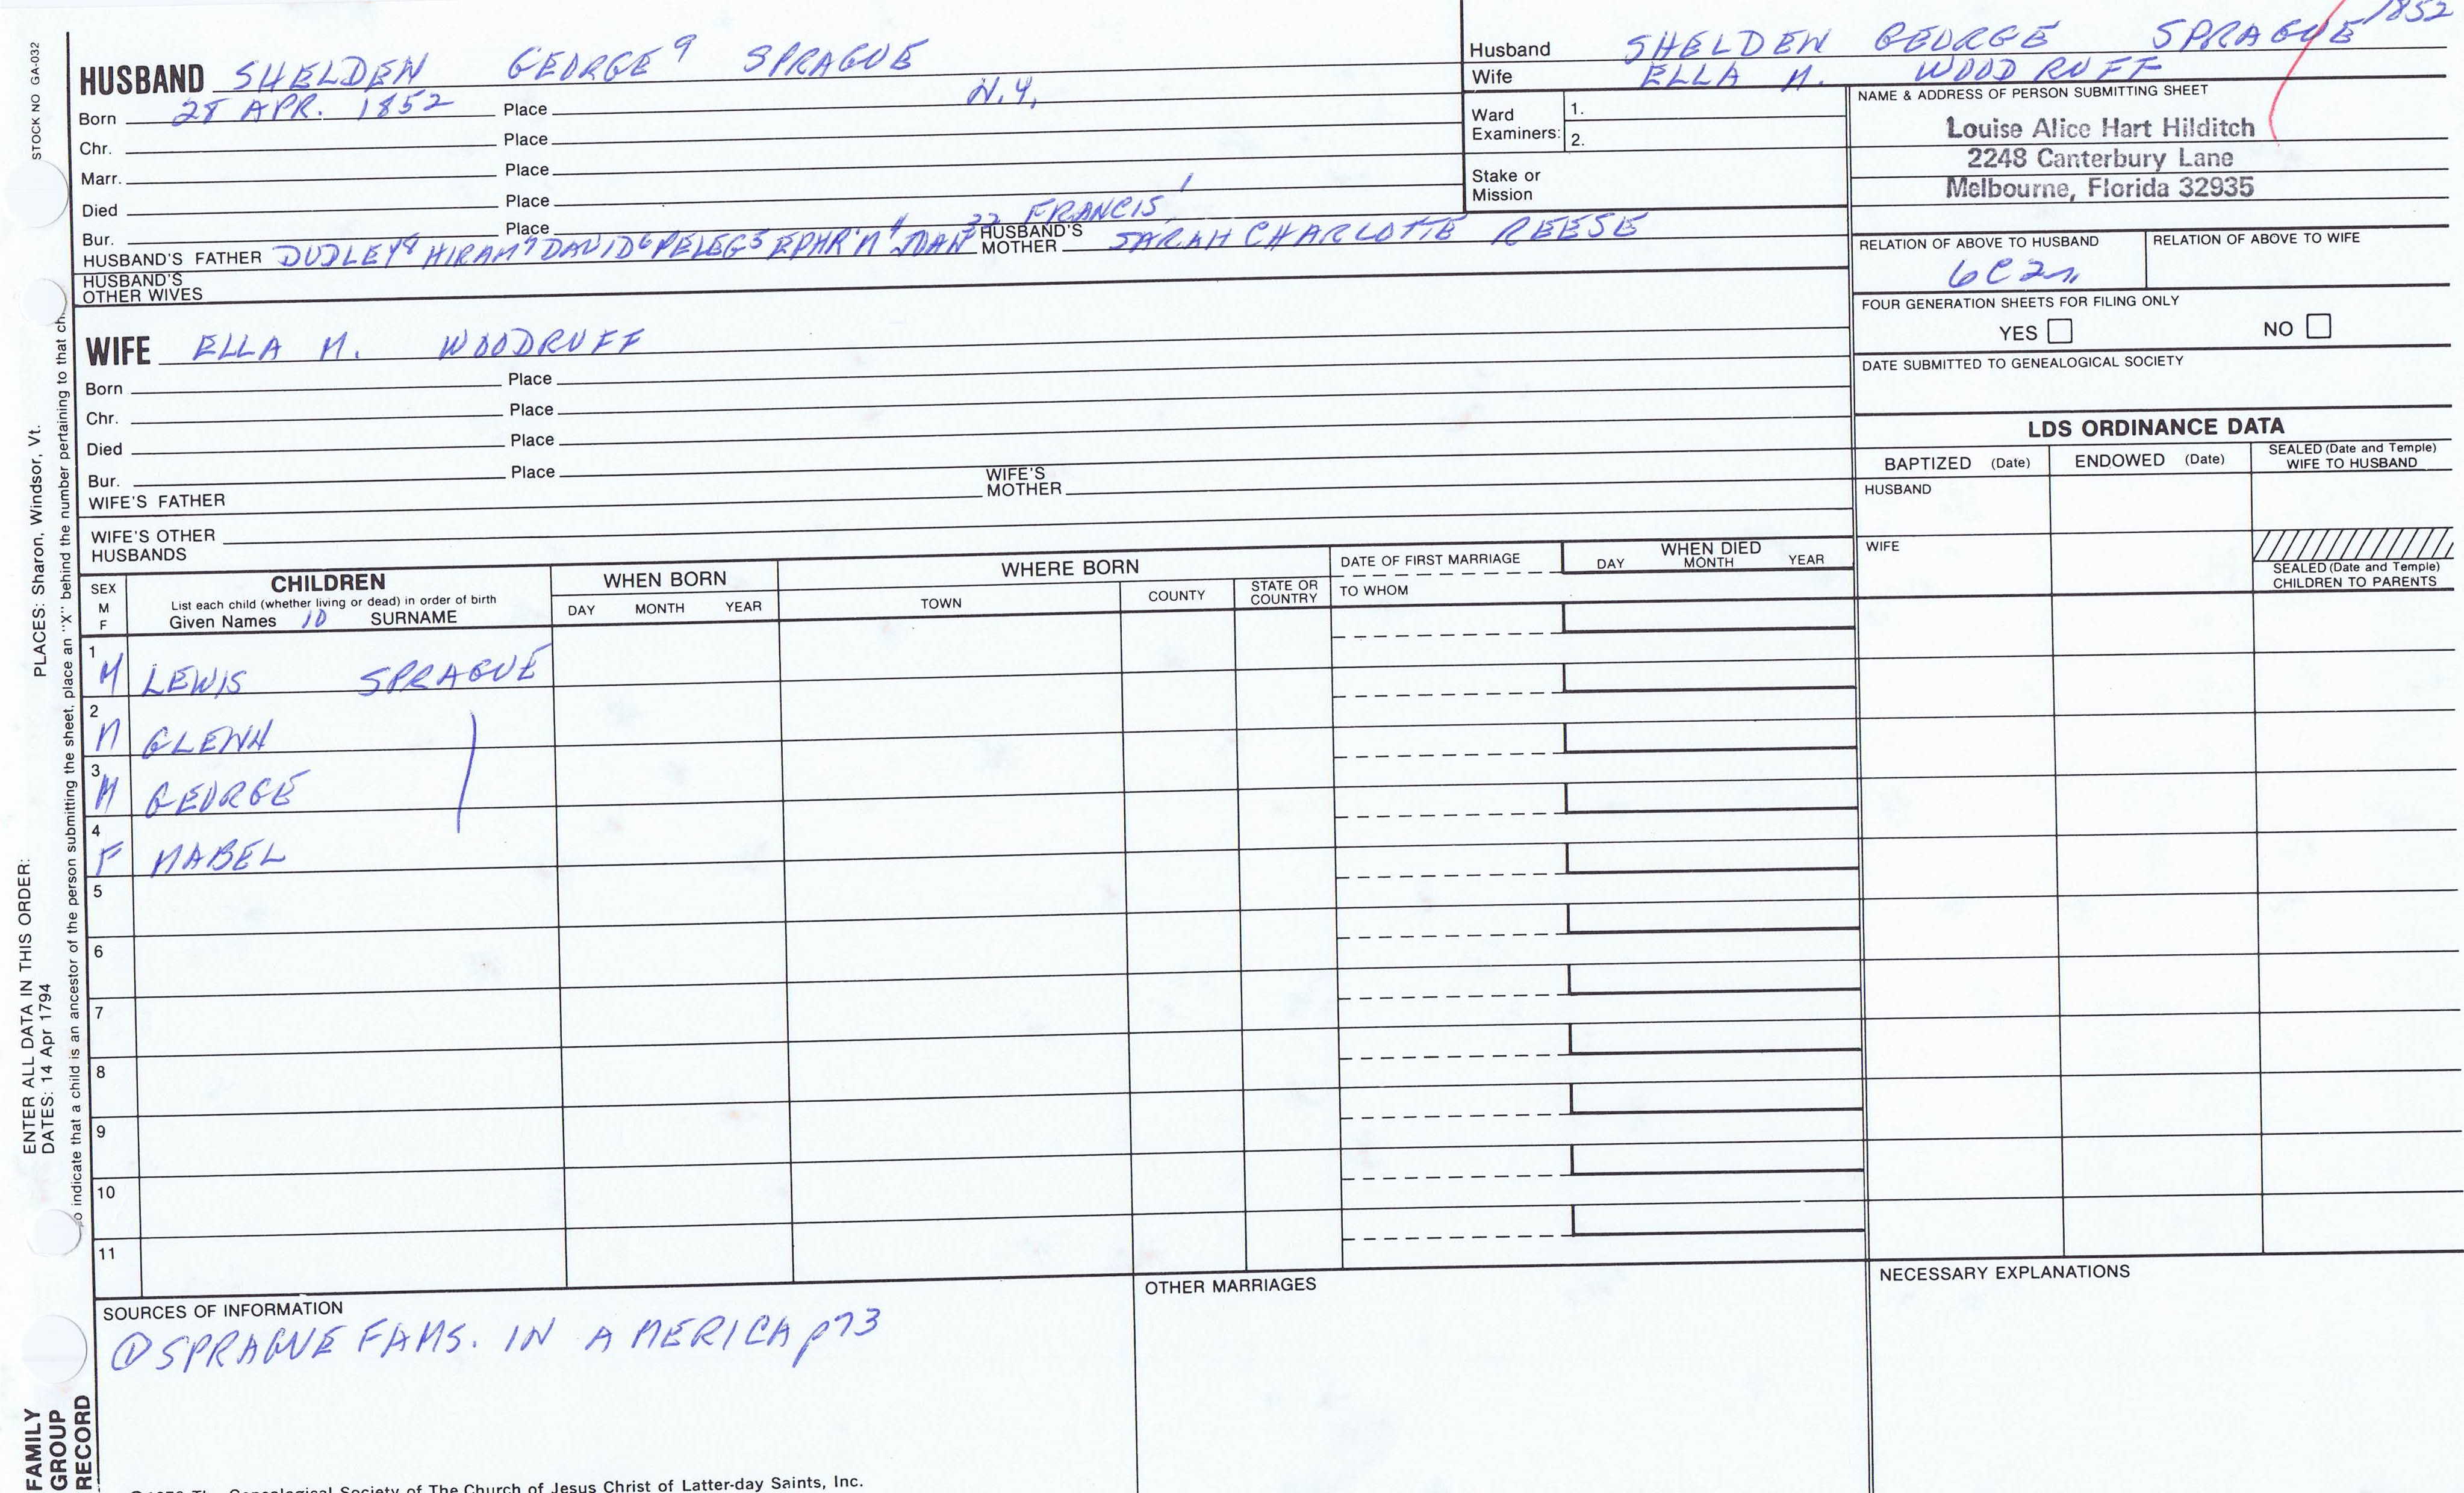 STOCK NO GA-032
PLACES: Sharon, Windsor, Vt.
ENTER ALL DATA IN THIS ORDER:
DATES: 14 Apr 1794
o indicate that a child is an ancestor of the person submitting the sheet, place an "X" behind the number pertaining to that ch
FAMILY
GROUP
RECORD
HUSBAND SHELDEN GEORGE 9 SPRAGUE
Born 28 APR. 1852 Place N.Y,
Chr. Place
Marr. Place
Died Place
Bur. Place
HUSBAND'S FATHER DUDLEY 8 HIRAM 7 DAVID 6 PELEG 5 EPHR'M 4 FRANCIS 1
HUSBAND'S MOTHER SARAH CHARLOTTE REESE
HUSBAND'S
OTHER WIVES
Husband SHELDEN GEORGE SPRAGUE 1852
Wife ELLA M. WOODRUFF
Ward
Examiners:
1.
2.
Stake or
Mission
NAME & ADDRESS OF PERSON SUBMITTING SHEET
Louise Alice Hart Hilditch
2248 Canterbury Lane
Melbourne, Florida 32935
RELATION OF ABOVE TO HUSBAND RELATION OF ABOVE TO WIFE
6C2r
FOUR GENERATION SHEETS FOR FILING ONLY
YES NO
DATE SUBMITTED TO GENEALOGICAL SOCIETY
WIFE ELLA M. WOODRUFF
Born Place
Chr. Place
Died Place
Bur. Place
WIFE'S FATHER WIFE'S MOTHER
WIFE'S OTHER
HUSBANDS
LDS ORDINANCE DATA
BAPTIZED (Date) ENDOWED (Date) SEALED (Date and Temple) WIFE TO HUSBAND
HUSBAND
WIFE
SEALED (Date and Temple)
CHILDREN TO PARENTS
SEX
M
F
CHILDREN
List each child (whether living or dead) in order of birth
Given Names 10 SURNAME
WHEN BORN
DAY MONTH YEAR
WHERE BORN
TOWN COUNTY STATE OR COUNTRY
DATE OF FIRST MARRIAGE
TO WHOM
WHEN DIED
DAY MONTH YEAR
1 M LEWIS SPRAGUE
2 M GLENN
3 M GEORGE
4 F MABEL
5
6
7
8
9
10
11
SOURCES OF INFORMATION
① SPRAGUE FAMS. IN AMERICA p73
OTHER MARRIAGES
NECESSARY EXPLANATIONS
The Genealogical Society of The Church of Jesus Christ of Latter-day Saints, Inc.